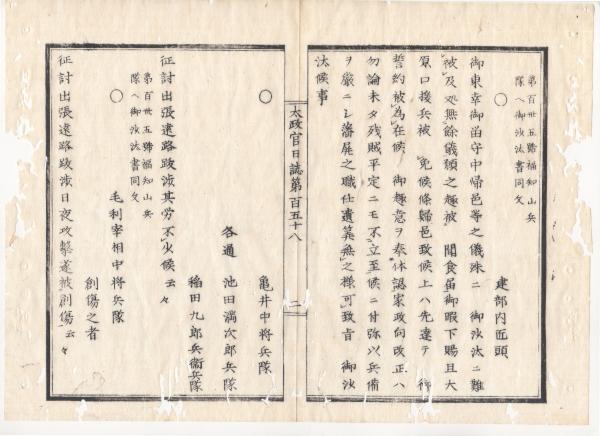 第百卅五號福知山兵
隊ヘ御沙汰書同文
○
建部内匠頭
御東幸御留守中歸邑等之儀殊ニ御沙汰ニ難
被及処無餘儀願之趣被 聞食届御暇下賜且大
原口援兵被 免候條歸邑致候上ハ先達テ御
誓約被為在候 御趣意ヲ奉体認家政向改正ハ
勿論未タ残賊平定ニモ不立至候ニ付弥以兵備
ヲ嚴ニシ藩屏之職仕遺算無之様可致旨 御沙
汰候事
太政官日誌第百五十八
二
○
亀井中将兵隊
各通 池田満次郎兵隊
稲田九郎兵衛兵隊
征討出張遠路跋渉其労不少候云々
第百卅五號福知山兵
隊ヘ御沙汰書同文
○
毛利宰相中将兵隊
創傷之者
征討出張遠路跋渉日夜攻撃遂被創傷云々